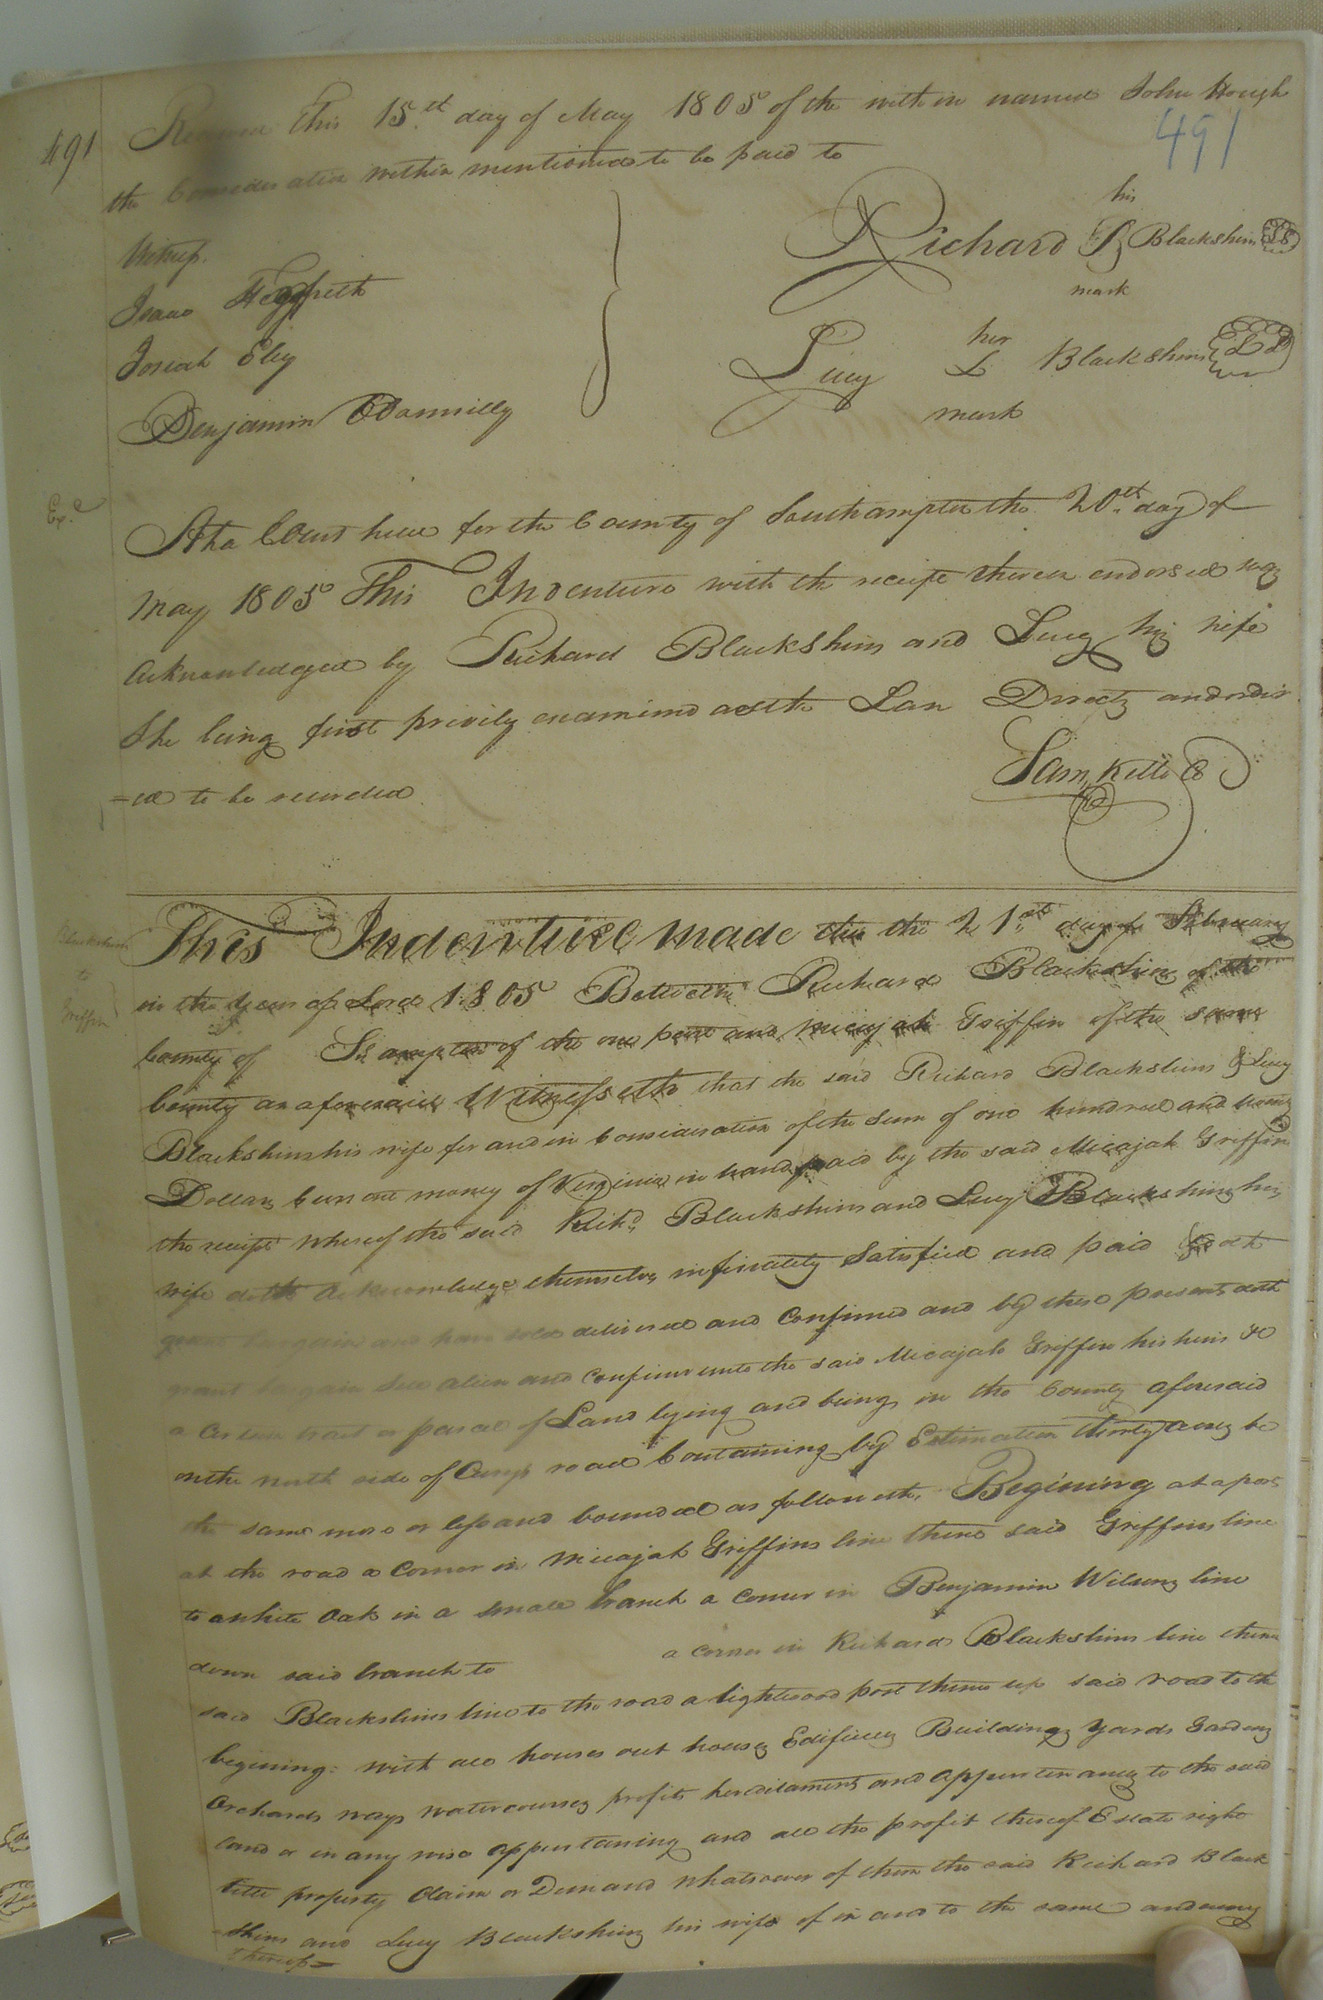 491
491
Received This 15.th day of May 1805 of the within named John Hough
the Consideration within mentioned to be paid to
his
Witness.
Richard B Blackshins LS
Isaac
mark
her
Josiah Eley
Lucy L Blackshins LS
mark
Benjamin ODonnilly
Ex.d
At a Court held for the County of Southampton the 20.th day of
May 1805 This Indenture with the receipt thereon endorsed was
acknowledged by Richard Blackshins and Lucy his wife
She being first privily examined as the Law Directs and order
=ed to be recorded
Sam Kello C
Blackshins
to
Griffin
This Indenture made this the 21.st day of February
in the year of Lord 1805 Between Richard Blackshins of the
County of Southampton of the one part and Micajah Griffin of the same
County as aforesaid Witnesseth that the said Richard Blackshins & Lucy
Blackshins his wife for and in Consideration of the Sum of one hundred and twenty
Dollars Current money of Virginia in hand paid by the said Micajah Griffin
the receipt whereof the said Rich.d Blackshins and Lucy Blackshins his
wife doth acknowledge themselves satisfied and paid doth
grant bargain and have sold delivered and confirmed and by these presents doth
grant bargain sell alien and confirm unto the said Micajah Griffin his heirs &c
a certain tract or parcel of Land lying and being in the County aforesaid
on the north side of road Containing by Estimation thirty acres be
the same more or less and bounded as followeth, Begining at a post
at the road a Corner in Micajah Griffins line thence said Griffins line
to a white Oak in a small branch a corner in Benjamin Wilsons line
down said branch to a corner in Richard Blackshins line thence
said Blackshins line to the road a lightwood post thence up said road to the
begining: with all houses out houses Edifices Buildings yards Gardens
Orchards ways watercourses profits hereditaments and appurtenances to the said
land or in any wise appertaining and all the profit thereof Estate right
title property Claim or Demand whatsoever of them the said Richard Black
=shins and Lucy Blackshins his wife of in and to the same and every
thereof=